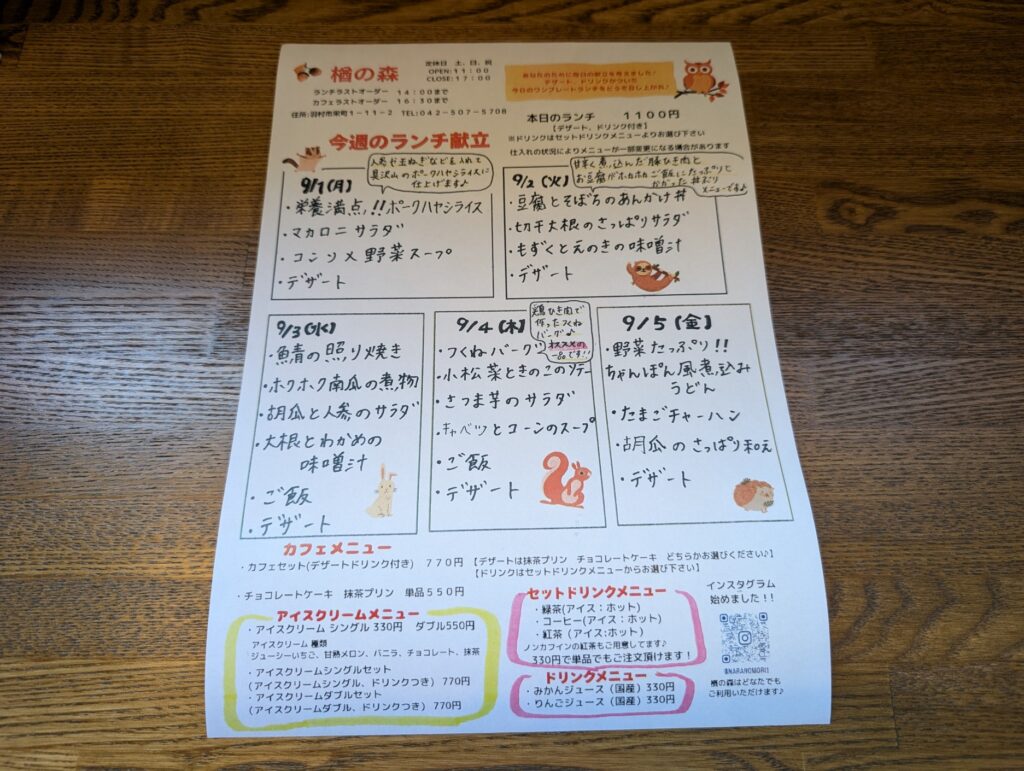 楢の森
定休日 土、日、祝
OPEN:11:00
CLOSE:17:00
ランチラストオーダー 14:00まで
カフェラストオーダー 16:30まで
住所:羽村市栄町1-11-2 TEL:042-507-5708
あなたのために毎日の献立を考えました♪
デザート、ドリンクがついた
今日のワンプレートランチをどうぞ召し上がれ♪
本日のランチ 1100円
【デザート、ドリンク付き】
※ドリンクはセットドリンクメニューよりお選び下さい
仕入れの状況によりメニューが一部変更になる場合があります
今週のランチ献立
9/1(月)
人参や玉ねぎなどを入れて
具沢山のポークハヤシライスに
仕上げます♪
・栄養満点!!ポークハヤシライス
・マカロニサラダ
・コンソメ野菜スープ
・デザート
9/2(火)
甘辛く煮込んだ豚ひき肉と
お豆腐がホカホカご飯にたっぷりと
かかった丼ぶり
メニューです♪
・豆腐とそぼろのあんかけ丼
・切干大根のさっぱりサラダ
・もずくとえのきの味噌汁
・デザート
9/3(水)
・鯖の照り焼き
・ホクホク南瓜の煮物
・胡瓜と人参のサラダ
・大根とわかめの
味噌汁
・ご飯
・デザート
9/4(木)
鶏ひき肉で
作ったつくね
バーグ♪
オススメの
一品です!!
・つくねバーグ
・小松菜ときのこのソテー
・さつま芋のサラダ
・キャベツとコーンのスープ
・ご飯
・デザート
9/5(金)
・野菜たっぷり!!
ちゃんぽん風煮込み
うどん
・たまごチャーハン
・胡瓜のさっぱり和え
・デザート
カフェメニュー
・カフェセット(デザートドリンク付き) 770円 【デザートは抹茶プリン チョコレートケーキ どちらかお選びください♪】
【ドリンクはセットドリンクメニューからお選び下さい】
・チョコレートケーキ 抹茶プリン 単品550円
アイスクリームメニュー
・アイスクリーム シングル 330円 ダブル550円
アイスクリーム 種類
ジューシーいちご、甘熟メロン、バニラ、チョコレート、抹茶
・アイスクリームシングルセット
(アイスクリームシングル、ドリンクつき) 770円
・アイスクリームダブルセット
(アイスクリームダブル、ドリンクつき) 770円
セットドリンクメニュー
・緑茶(アイス:ホット)
・コーヒー(アイス:ホット)
・紅茶(アイス:ホット)
ノンカフェインの紅茶もご用意してます♪
330円で単品でもご注文頂けます!
ドリンクメニュー
・みかんジュース(国産)330円
・りんごジュース(国産)330円
インスタグラム
始めました!!
@NARANOMORI1
楢の森はどなたでも
ご利用いただけます♪